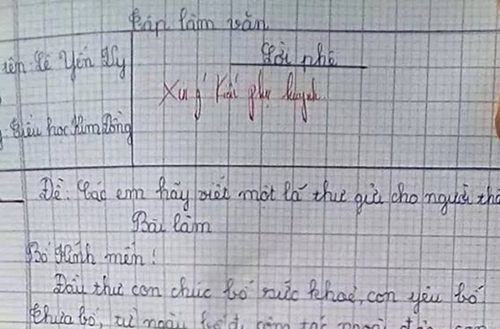 Tập làm văn
tên: Lê Yến Vy
Lời phê
Xin ý kiến phụ huynh
Tiểu học Kim Đồng
Đề: Các em hãy viết một lá thư gửi cho người thâ
Bài làm
Bố kính mến!
Đầu thư con chúc bố sức khoẻ, con yêu bố
Thưa bố, từ ngày bố đi